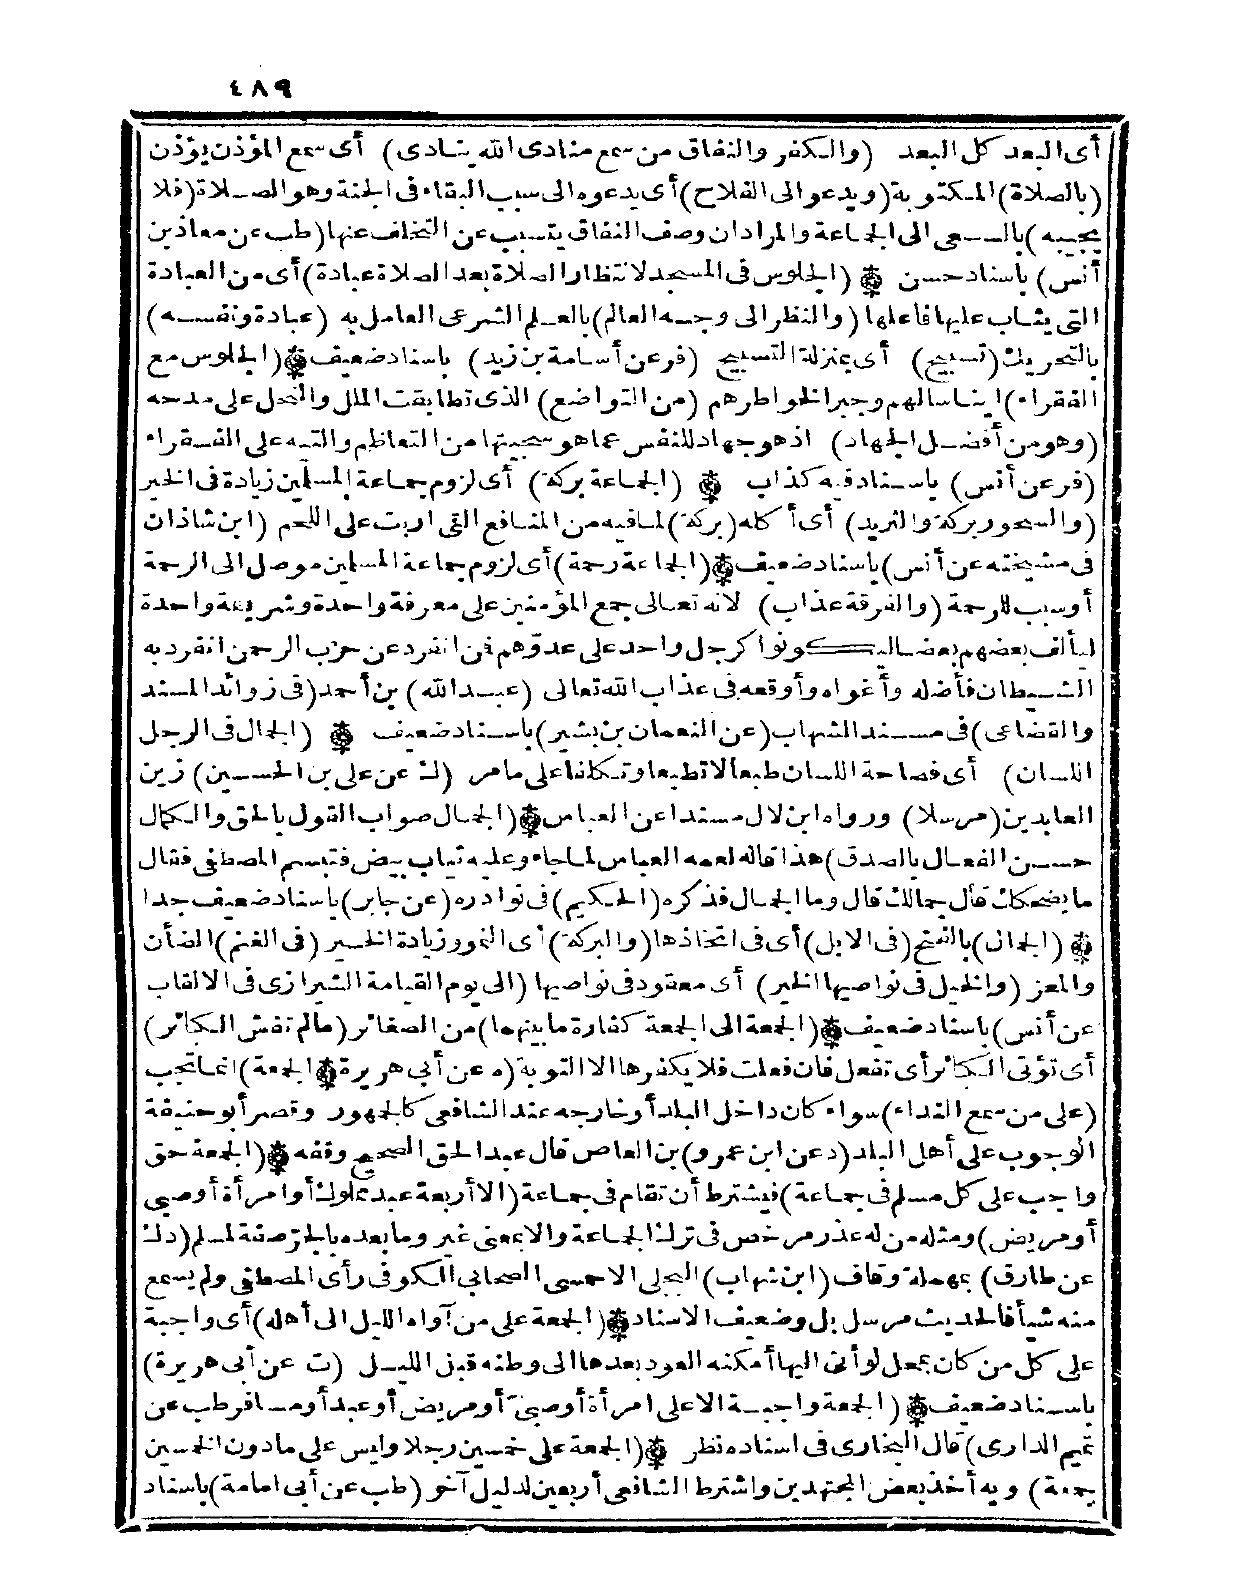 ٤٨٩
أى البعد كل البعد (والكفر والنفاق من سمع منادى الله ينادى) أى سمع المؤذن يؤذن
(بالصلاة) المكتوبة (ويدعو الى الفلاح) أى يدعوه الى سبب البقاء فى الجنة وهو الصلاة (فلا
يجيبه) بالسعى الى الجماعة والمراد ان وصف النفاق يتسبب عن التخلف عنها (طب عن معاذ بن
أنس) باسناد حسن ۞ (الجلوس فى المسجد لانتظار الصلاة بعد الصلاة عبادة) أى من العبادة
التى يثاب عليها فاعلها (والنظر الى وجه العالم) بالعلم الشرعى العامل به (عبادة ونفسه)
بالتحريك (تسبيح) أى بمنزلة التسبيح (فر عن أسامة بن زيد) باسناد ضعيف ۞ (الجلوس مع
الفقراء) ايناسا لهم وجبرا لخواطرهم (من التواضع) الذى تطابقت الملل والنحل على مدحه
(وهو من أفضل الجهاد) اذ هو جهاد للنفس عما هو سجيتها من التعاظم والتيه على الفقراء
(فر عن أنس) باسناد فيه كذاب ۞ (الجماعة بركة) أى لزوم جماعة المسلمين زيادة فى الخير
(والسحور بركة والثريد) أى أكله (بركة) لما فيه من المنافع التى اربت على اللحم (ابن شاذان
فى مشيخته عن أنس) باسناد ضعيف ۞ (الجماعة رحمة) أى لزوم جماعة المسلمين موصل الى الرحمة
أو سبب للرحمة (والفرقة عذاب) لانه تعالى جمع المؤمنين على معرفة واحدة وشريعة واحدة
ليألف بعضهم بعضا ليكونوا كرجل واحد على عدوّهم فمن انفرد عن حزب الرحمن انفرد به
الشيطان فأضله وأغواه وأوقعه فى عذاب الله تعالى (عبد الله) بن أحمد (فى زوائد المسند
والقضاعى) فى مسند الشهاب (عن النعمان بن بشير) باسناد ضعيف ۞ (الجمال فى الرجل
اللسان) أى فصاحة اللسان طبعا لا تطبعا وتكلفا على ما مر (ك عن على بن الحسين) زين
العابدين (مرسلا) ورواه ابن لال مسندا عن العباس ۞ (الجمال صواب القول بالحق والكمال
حسن الفعال بالصدق) هذا قاله لعمه العباس لما جاء وعليه ثياب بيض فتبسم المصطفى فقال
ما يضحكك قال جمالك قال وما الجمال فذكره (الحكيم) فى نوادره (عن جابر) باسناد ضعيف جدا
۞ (الجمال) بالفتح (فى الابل) أى فى اتخاذها (والبركة) أى النمو وزيادة الخير (فى الغنم) الضأن
والمعز (والخيل فى نواصيها الخير) أى معقود فى نواصيها (الى يوم القيامة الشيرازى فى الالقاب
عن أنس) باسناد ضعيف ۞ (الجمعة الى الجمعة كفارة ما بينهما) من الصغائر (ما لم تغش الكبائر)
أى تؤتى الكبائر أى تفعل فان فعلت فلا يكفرها الا التوبة (ه عن أبى هريرة ۞ الجمعة) انما تجب
(على من سمع النداء) سواء كان داخل البلد أو خارجه عند الشافعى كالجمهور وقصر أبو حنيفة
الوجوب على أهل البلد (د عن ابن عمرو) بن العاص قال عبد الحق الصحيح وقفه ۞ (الجمعة حق
واجب على كل مسلم فى جماعة) فيشترط أن تقام فى جماعة (الا أربعة عبد مملوك أو امرأة أو صبى
أو مريض) ومثله من له عذر مرخص فى ترك الجماعة والا بمعنى غير وما بعده بالجرّ صفة لمسلم (د ك
عن طارق) بمهملة وقاف (ابن شهاب) البجلى الاحمسى الصحابى الكوفى رأى المصطفى ولم يسمع
منه شيأ فالحديث مرسل بل وضعيف الاسناد ۞ (الجمعة على من آواه الليل الى أهله) أى واجبة
على كل من كان بمحل لو أتى اليها أمكنه العود بعدها الى وطنه قبل الليل (ت عن أبى هريرة)
باسناد ضعيف ۞ (الجمعة واجبة الا على امرأة أو صبىّ أو مريض أو عبد أو مسافر طب عن
تميم الدارى) قال البخارى فى اسناده نظر ۞ (الجمعة على خمسين رجلا وليس على ما دون الخمسين
جمعة) وبه أخذ بعض المجتهدين واشترط الشافعى أربعين لدليل آخر (طب عن أبى امامة) باسناد